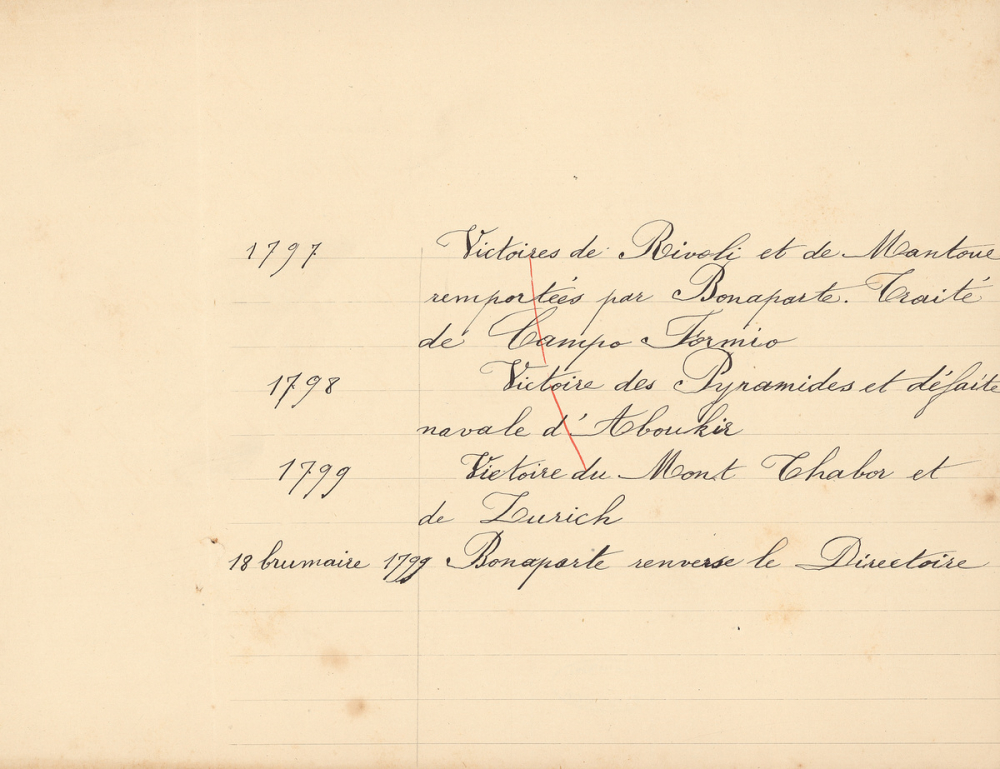 1797 Victoires de Rivoli et de Mantoue
remportées par Bonaparte. Traité
de Campo Formio
1798 Victoire des Pyramides et défaite
navale d'Aboukir
1799 Victoire du Mont Thabor et
de Zurich
18 brumaire 1799 Bonaparte renverse le Directoire